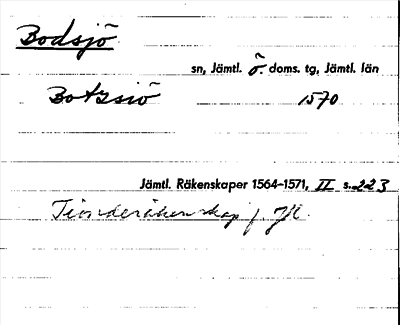 Bodsjö
sn, Jämtl. ö. doms. tg, Jämtl. län
Botzsiö 1570
Jämtl. Räkenskaper 1564–1571, II s. 223
Tionderäkenskap f. Jtl.